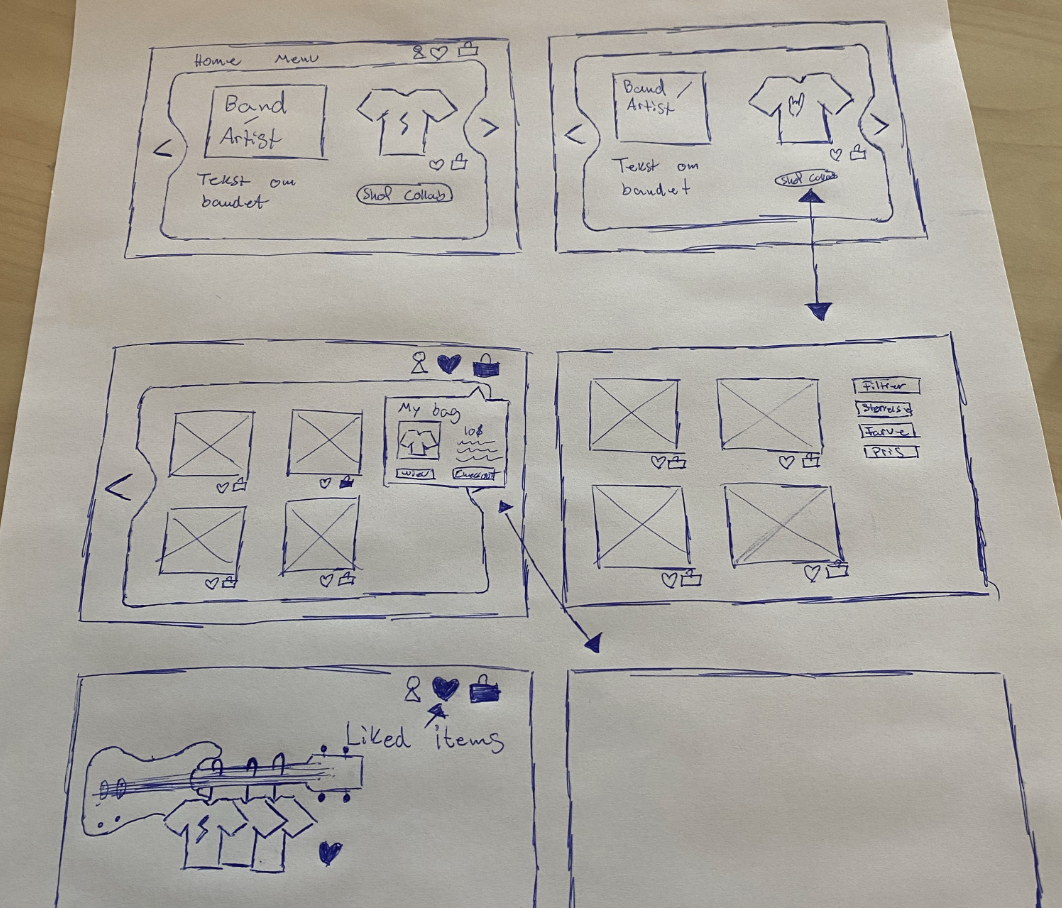 Home Menu
Band
/
Artist
Tekst om
bandet
Shop Collab
Band /
Artist
Tekst om
bandet
Shop Collab
My bag
10$
View
Checkout
Filtrer
Størrelse
Farve
Pris
Liked items